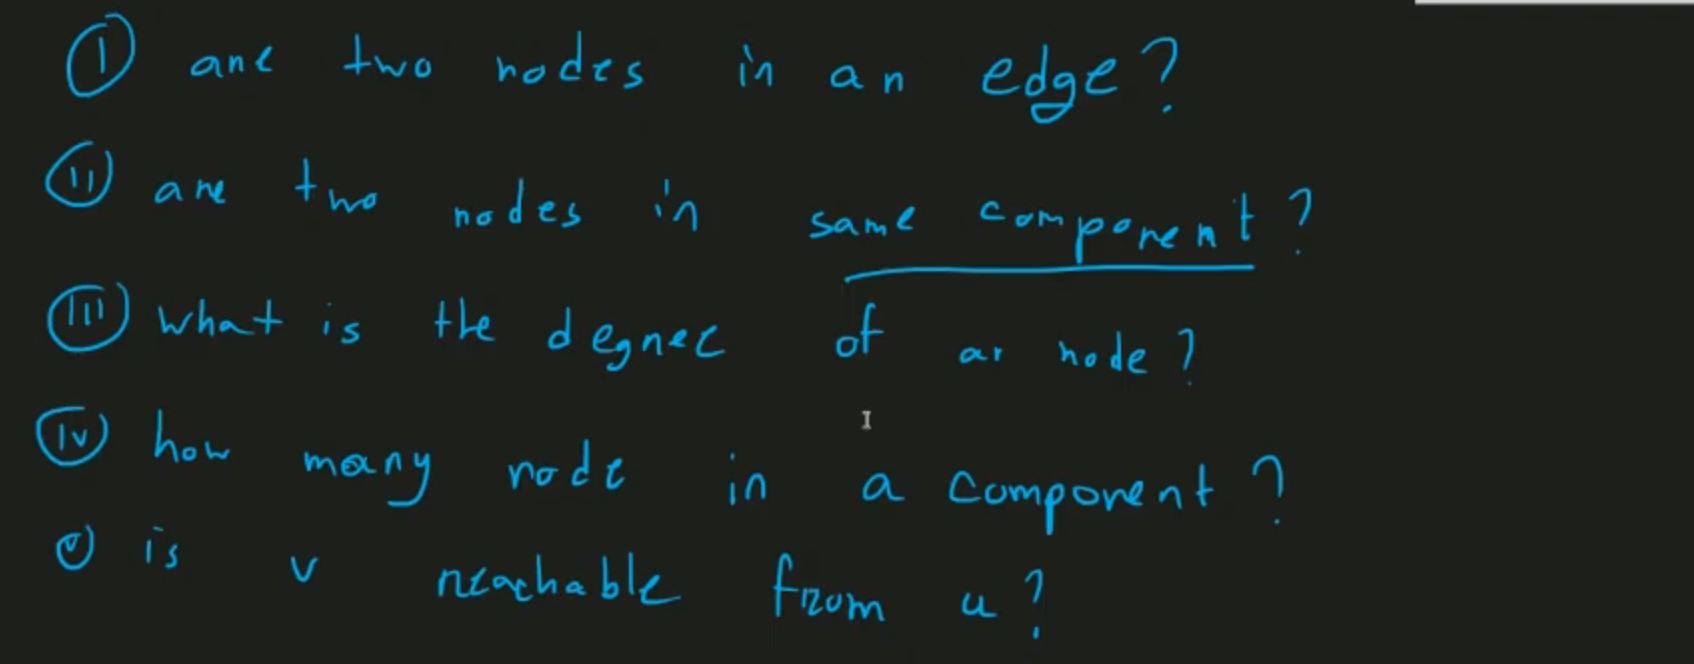 (I) are two nodes in an edge?
(II) are two nodes in same component?
(III) what is the degree of an node?
(IV) how many node in a component?
(V) is v reachable from u?